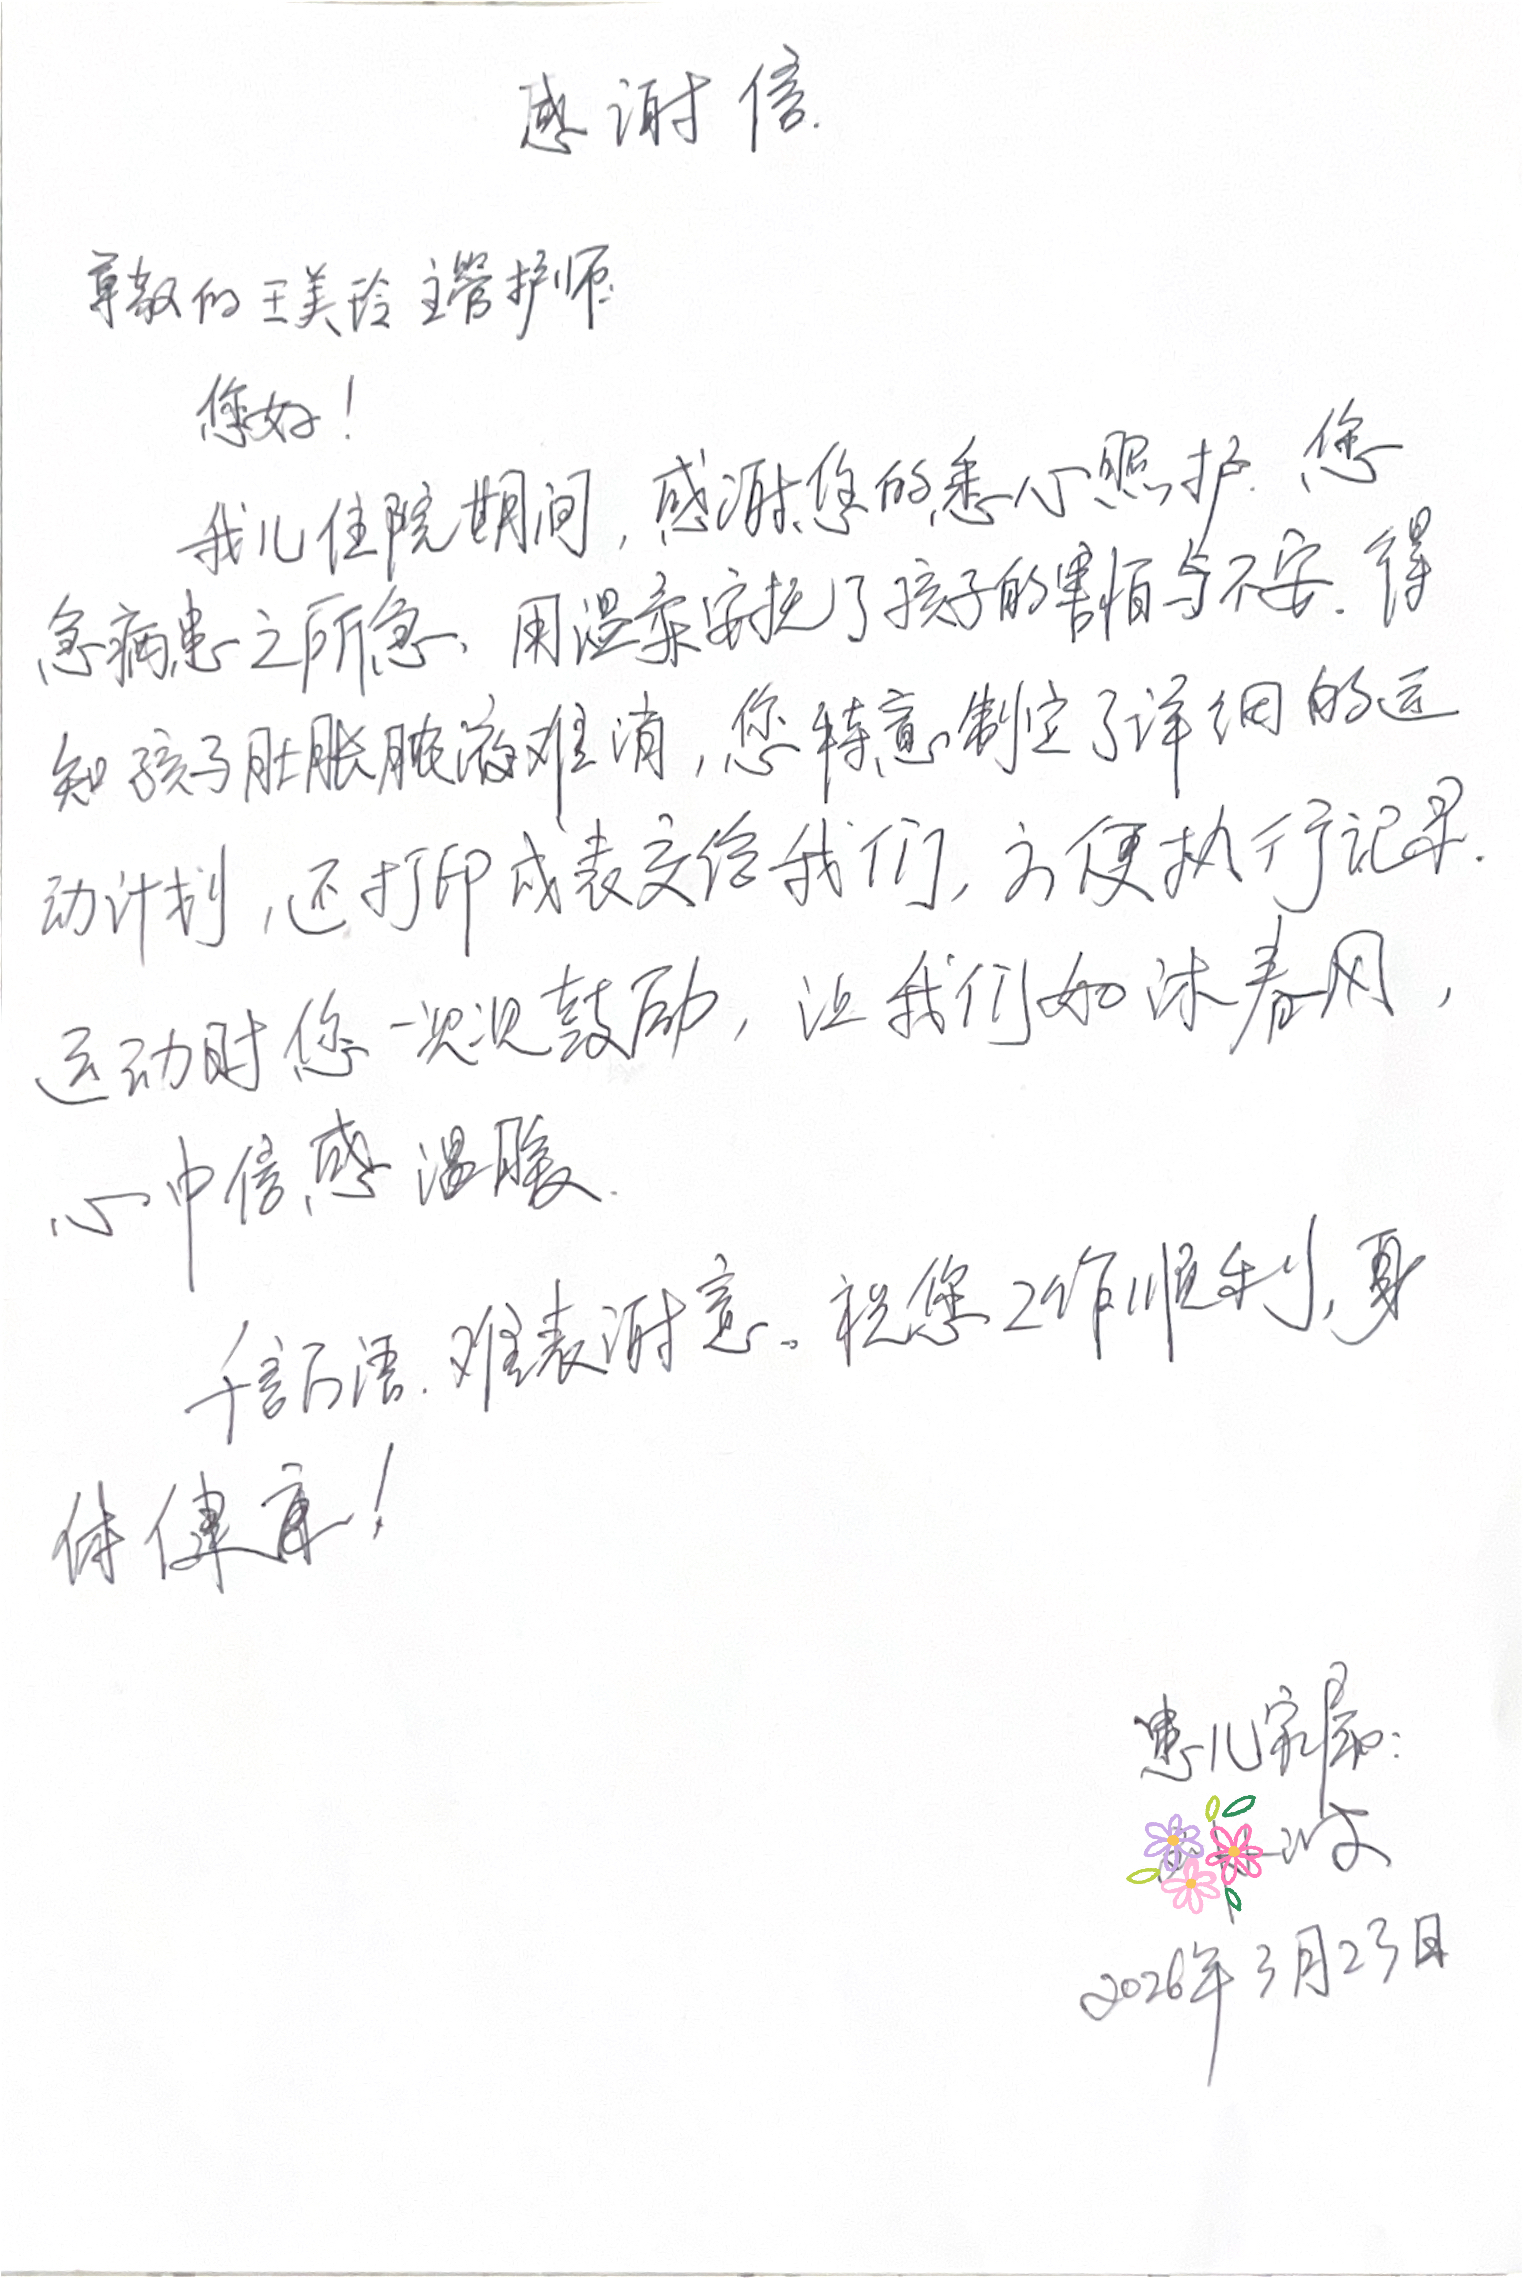 感谢信.
尊敬的王美玲主管护师:
您好!
我儿住院期间,感谢您的悉心照护.您
急病患之所急、用温柔安抚了孩子的害怕与不安.得
知孩子肚胀脓液难消,您特意制定了详细的运
动计划,还打印成表交给我们,方便执行记录.
运动时您一次次鼓励,让我们如沐春风,
心中倍感温暖.
千言万语.难表谢意。祝您工作顺利,身
体健康!
患儿家属:
2026年3月23日